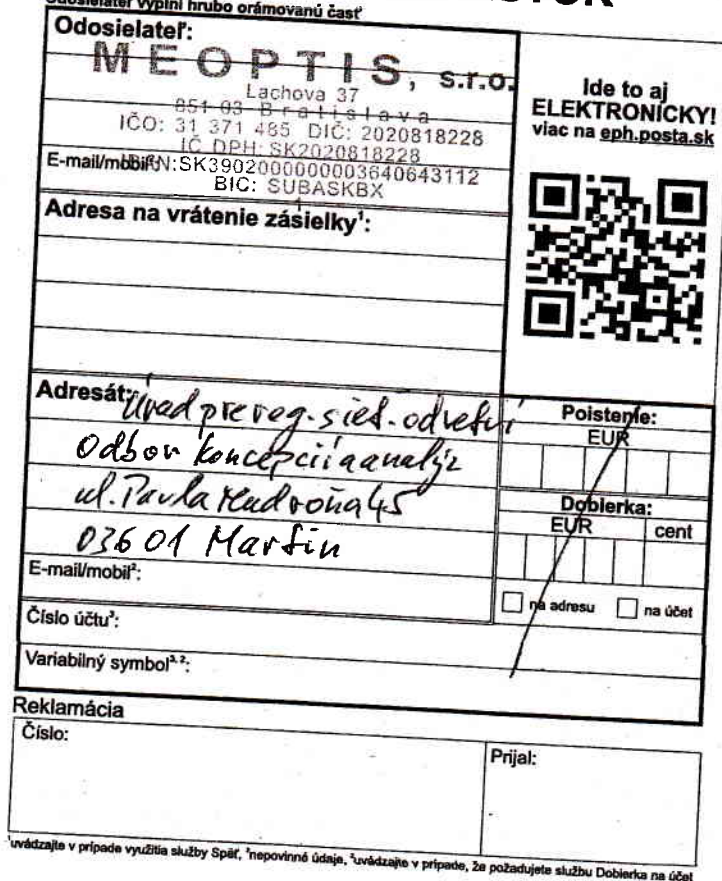 Odosielateľ vyplní hrubo orámovanú časť
Odosielateľ:
MEOPTIS, s.r.o.
Lachova 37
851 03 Bratislava
IČO: 31 371 485 DIČ: 2020818228
IČ DPH: SK2020818228
E-mail/mobil²:
IBAN:SK3902000000003640643112
BIC: SUBASKBX
Ide to aj
ELEKTRONICKY!
viac na eph.posta.sk
Adresa na vrátenie zásielky¹:
Adresát:
Úrad pre reg. sieť. odvetví
Odbor koncepcií a analýz
ul. Pavla Mudroňa 45
03601 Martin
E-mail/mobil²:
Poistenie:
EUR
Dobierka:
EUR cent
na adresu na účet
Číslo účtu³:
Variabilný symbol³,²:
Reklamácia
Číslo:
Prijal:
¹uvádzajte v prípade využitia služby Späť, ²nepovinné údaje, ³uvádzajte v prípade, že požadujete službu Dobierka na účet